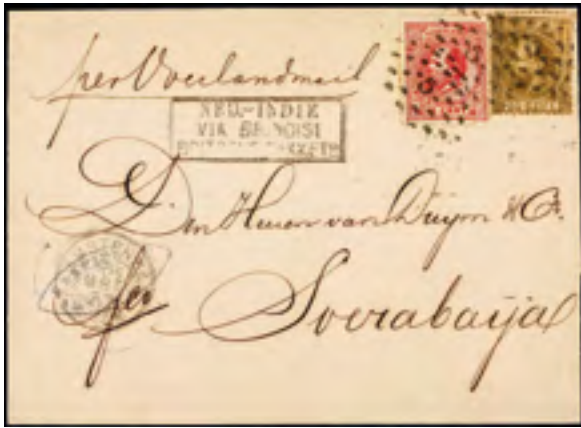 per Overlandmail
NED.-INDIE
VIA BRINDISI
Den Heeren van Duym & Co.
Soerabaija